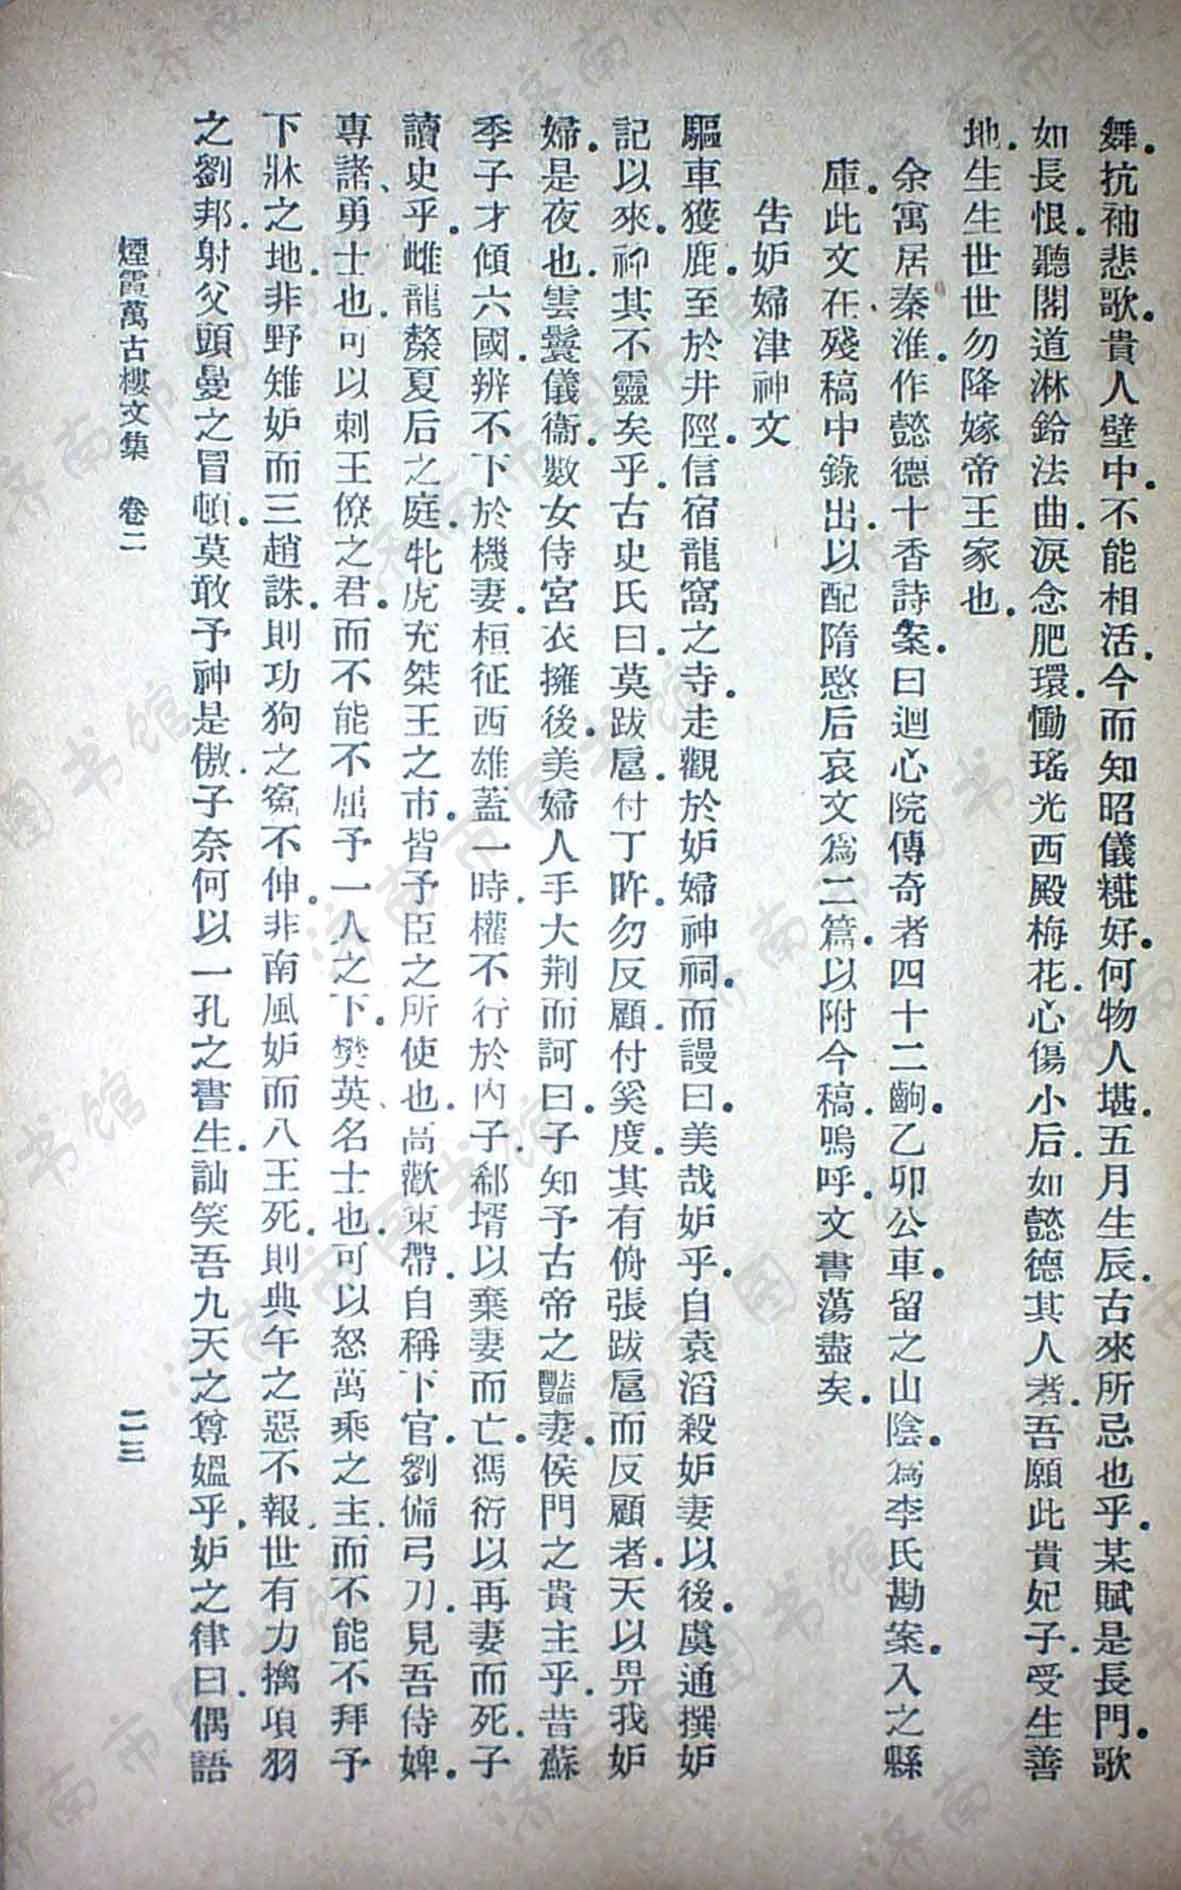 舞。抗袖悲歌。貴人壁中。不能相活。今而知昭儀糚好。何物人堪。五月生辰。古來所忌也乎。某賦是長門。歌
如長恨。聽閣道淋鈴法曲。淚念肥環。慟瑤光西殿梅花。心傷小后。如懿德其人者。吾願此貴妃子。受生善
地。生生世世勿降嫁帝王家也。
余寓居秦淮。作懿德十香詩案。曰迴心院傳奇者四十二齣。乙卯公車。留之山陰。爲李氏勘案。入之縣
庫。此文在殘稿中錄出。以配隋愍后哀文爲二篇。以附今稿。嗚呼。文書蕩盡矣。
告妒婦津神文
驅車獲鹿。至於井陘。信宿龍窩之寺。走觀於妒婦神祠。而謾曰。美哉妒乎。自袁滔殺妒妻以後。虞通撰妒
記以來。神其不靈矣乎。古史氏曰。莫跋扈。付丁昨。勿反顧。付奚度。其有侜張跋扈而反顧者。天以畀我妒
婦。是夜也。雲鬟儀衞。數女侍宮衣擁後。美婦人手大荆而訶曰。子知予古帝之豔妻。侯門之貴主乎。昔蘇
季子才傾六國。辨不下於機妻。桓征西雄蓋一時。權不行於內子。郗壻以棄妻而亡。馮衍以再妻而死。子
讀史乎。雌龍漦夏后之庭。牝虎充桀王之市。皆予臣之所使也。高歡束帶。自稱下官。劉備弓刀。見吾侍婢。
專諸、勇士也。可以刺王僚之君。而不能不屈予一人之下。樊英、名士也。可以怒萬乘之主。而不能不拜予
下牀之地。非野雉妒而三趙誅。則功狗之寃不伸。非南風妒而八王死。則典午之惡不報。世有力擒項羽
之劉邦。射父頭曼之冒頓。莫敢予神是傲。子奈何以一孔之書生。訕笑吾九天之尊媼乎。妒之律曰。偶語
煙霞萬古樓文集 卷二 二三